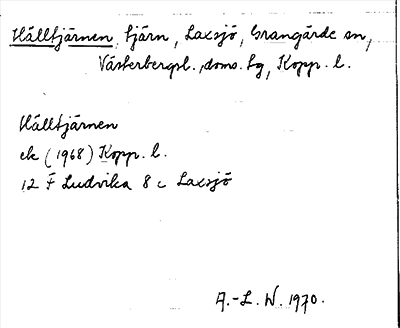 Hålltjärnen, tjärn, Laxsjö, Grangärde sn,
Västerbergsl. doms. tg, Kopp. l.
Hålltjärnen
ek (1968) Kopp. l.
12 F Ludvika 8 c Laxsjö
A.-L. W. 1970.